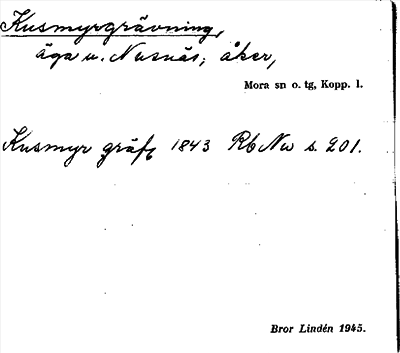 Kusmyrgrävning,
äga u. Nusnäs; åker,
Mora sn o. tg, Kopp. l.
Kusmyr gräfg 1843 Rb Nu s. 201.
Bror Lindén 1945.